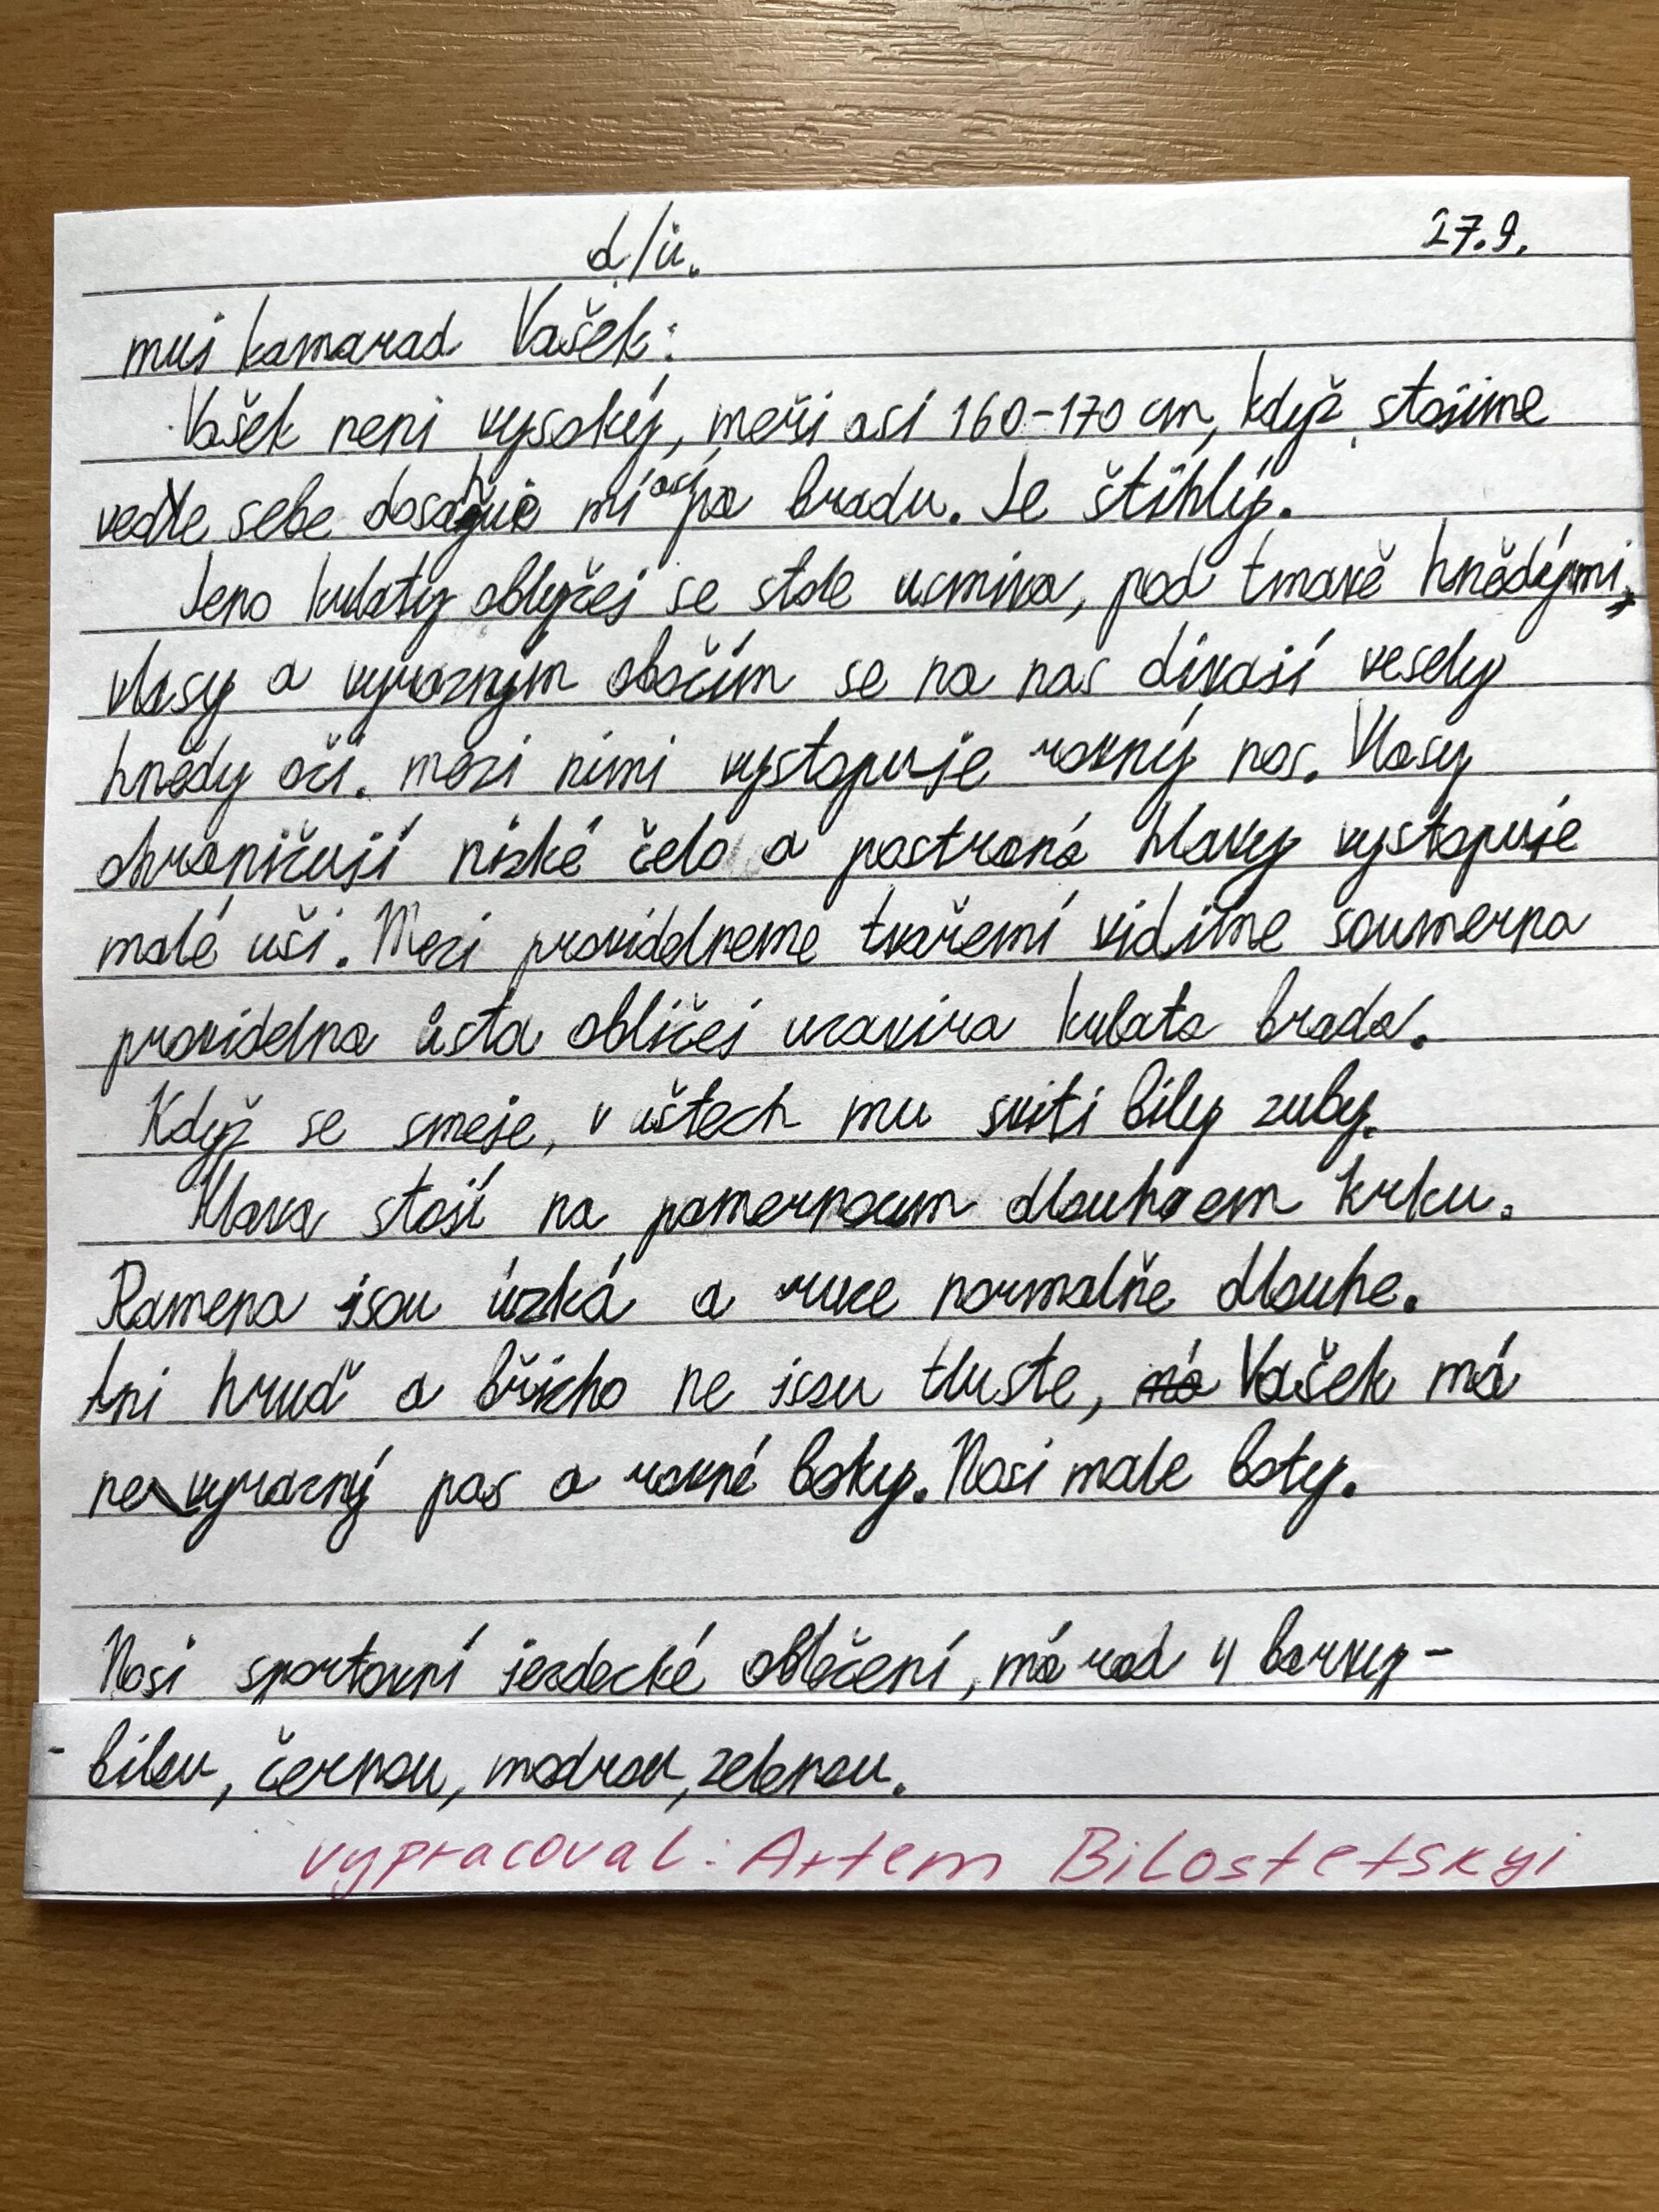 d/ú. 27.9.
muj kamarad Vašek:
Vašek neni vysoký, meři asi 160-170 cm, když stojime
vedle sebe dosahuje mi asi po bradu. Je štíhlý.
Jeho kulaty oblyčej se stale usmiva, pod tmavě hnědými,
vlasy a vyrazným obočím se na nas divají vesely
hnědy oči. mezi nimi vystupuje rovný nos. Vlasy
ohraničují nizké čelo a postraná hlavy vystupuje
malé uši. Mezi pravidelneme tvařemi vidime soumerna
pravidelna ústa obličej uzavira kulata brada.
Když se smeje, v uštech mu sviti bily zuby.
Hlava stojí na pomernoum dlouhoem krku.
Ramena jsou úzká a ruce normalňe dlouhe.
Ani hruď a břicho ne jsou tluste, Vašek má
nevyrazný pas a rovné boky. Nosi male boty.
Nosi sportovní jezdecké oblečení, má rad 4 barvy-
- bilou, černou, modrou, zelenou.
vypracoval: Artem Bilostetskyi